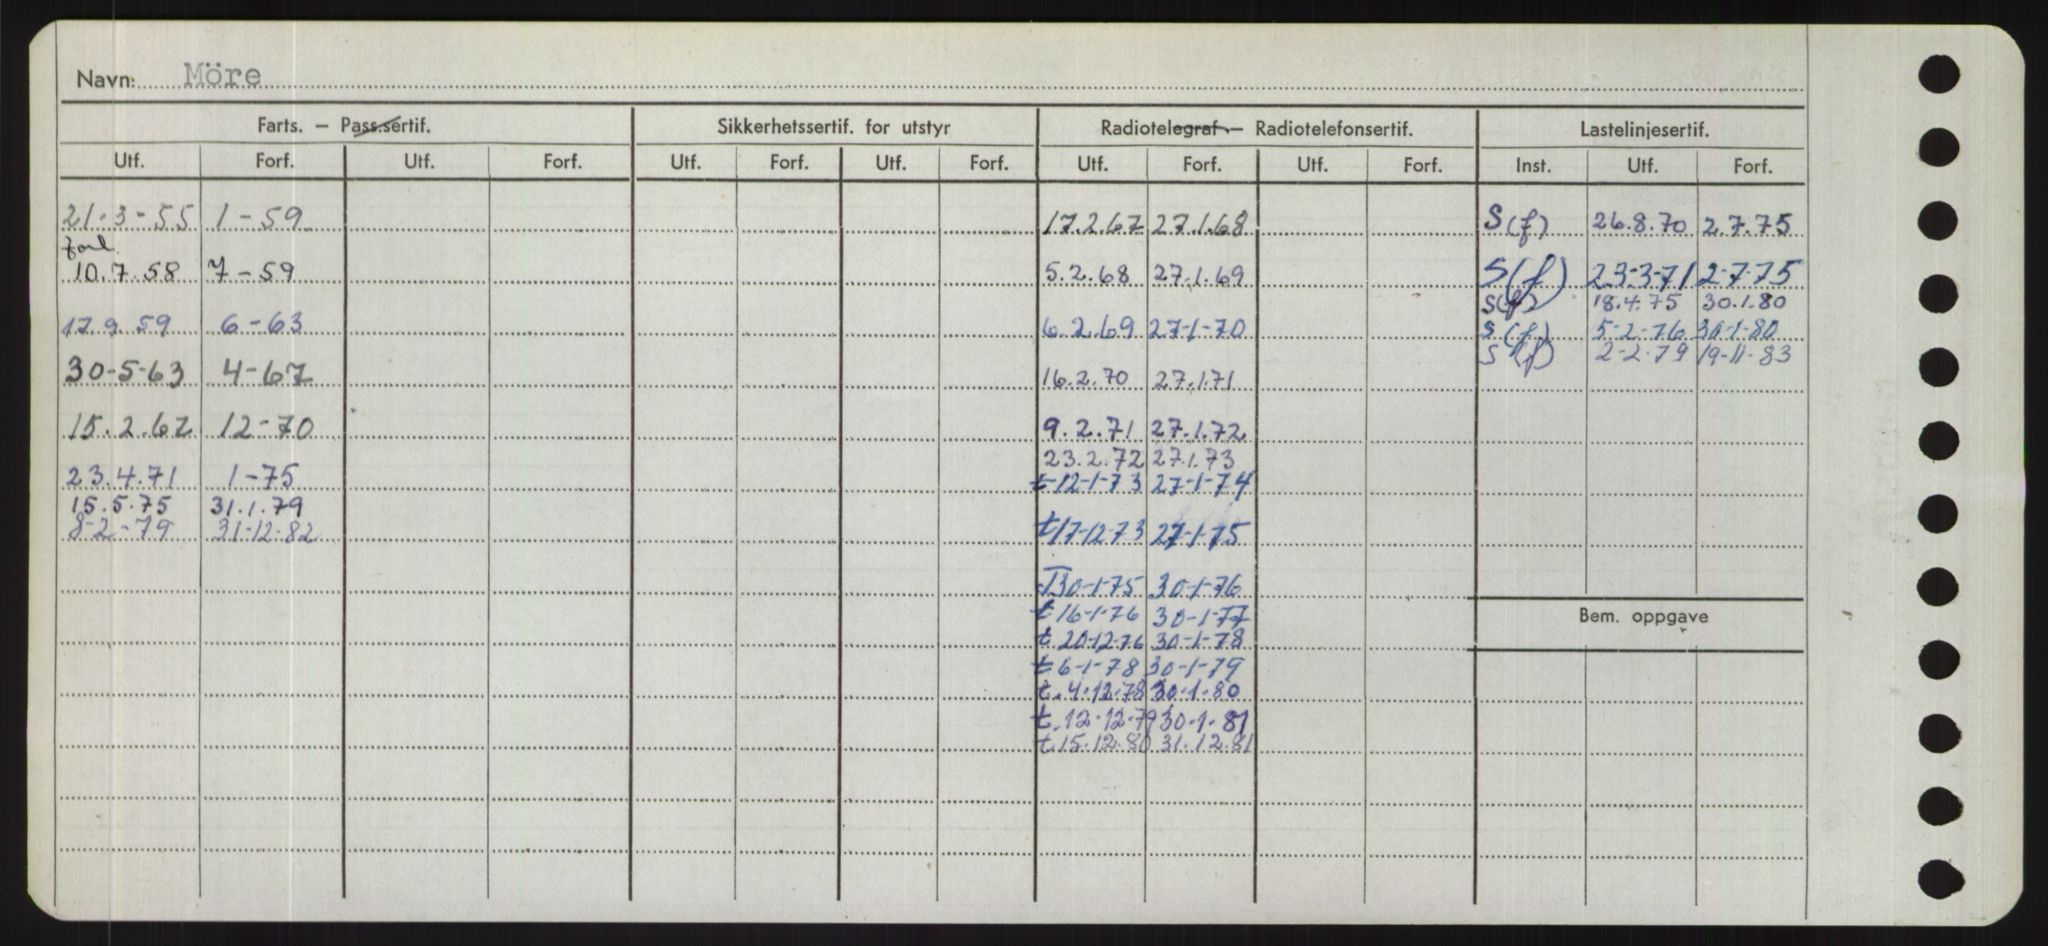 Navn: Möre
Farts. – Pass.sertif. Sikkerhetssertif. for utstyr Radiotelegraf – Radiotelefonsertif. Lastelinjesertif.
Utf. Forf. Utf. Forf. Utf. Forf. Utf. Forf. Utf. Forf. Utf. Forf. Inst. Utf. Forf.
21-3-55 1-59 17.2.67 27.1.68 S(f) 26.8.70 2.7.75
forl.
10.7.58 7-59 5.2.68 27.1.69 S(f) 23-3-71 2-7-75
S(f) 18.4.75 30.1.80
17.9.59 6-63 6.2.69 27-1-70 S(f) 5-2-76 30-1-80
S(f) 2-2-79 19-11-83
30-5-63 4-67 16.2.70 27.1.71
15.2.67 12-70 9.2.71 27.1.72
23.2.72 27.1.73
23.4.71 1-75 t-12-1-73 27-1-74
15.5.75 31.1.79
8-2-79 31-12-82 t17-12-73 27-1-75
T30-1-75 30-1-76
t 16-1-76 30-1-77
Bem. oppgave
t 20-12-76 30-1-78
t 6-1-78 30-1-79
t. 4-12-78 30-1-80
t. 12-12-79 30-1-81
t. 15.12.80 31.12.81